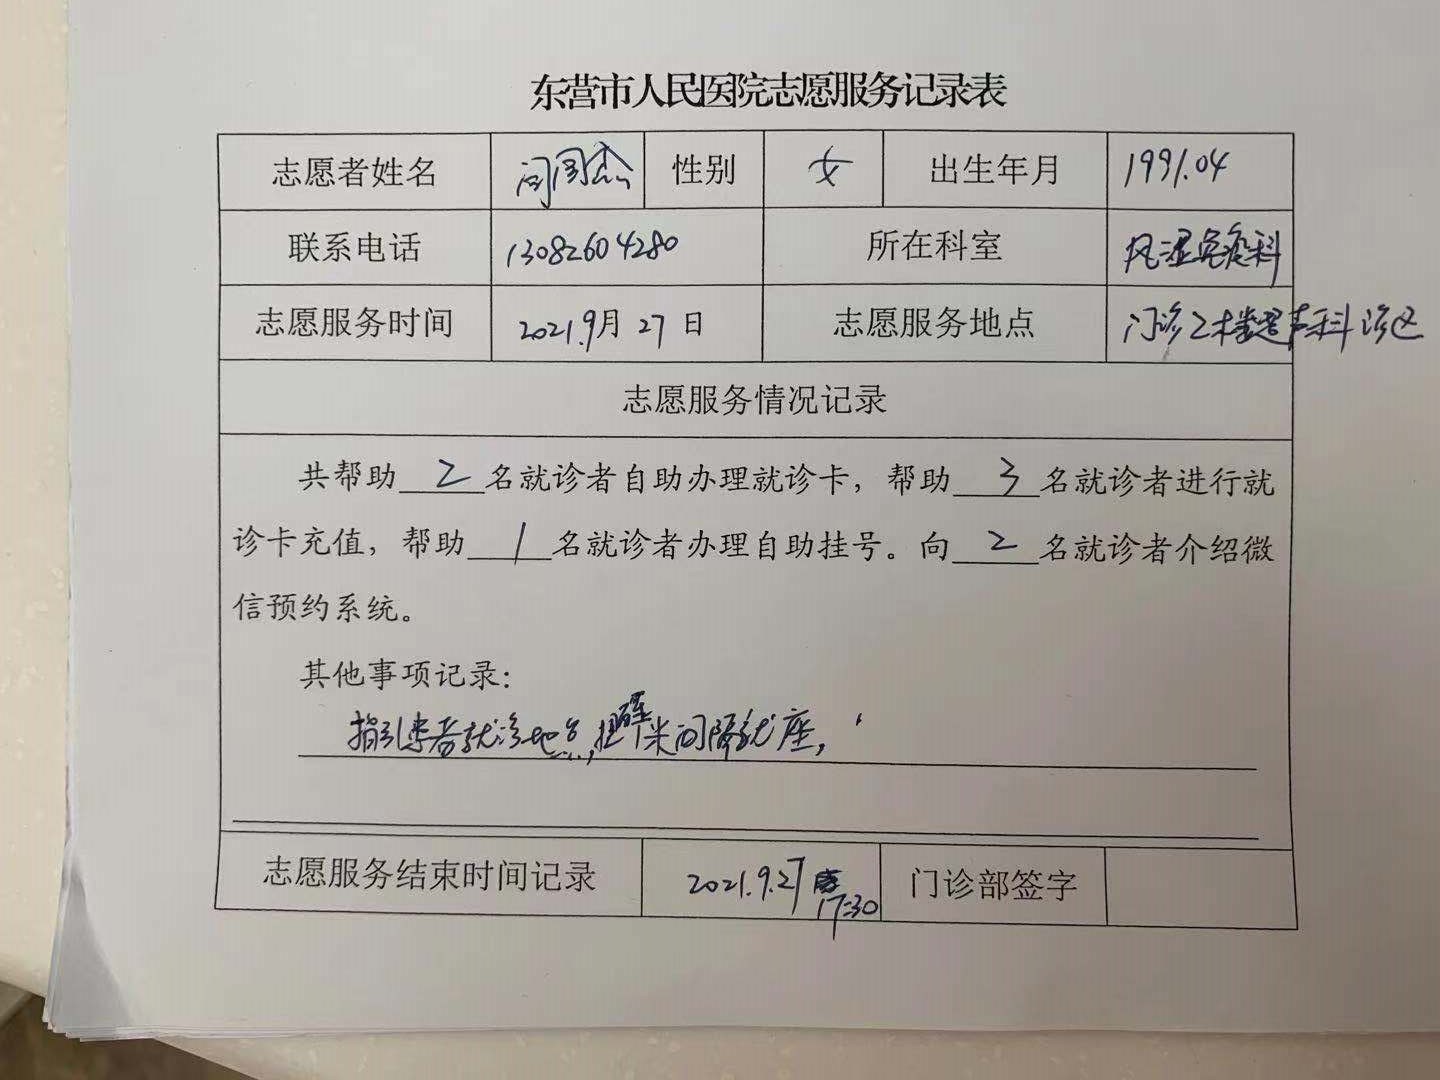 东营市人民医院志愿服务记录表
志愿者姓名 性别 女 出生年月 1991.04
联系电话 13082604280 所在科室 风湿免疫科
志愿服务时间 2021.9月27日 志愿服务地点 门诊2楼超声科诊区
志愿服务情况记录
共帮助2名就诊者自助办理就诊卡，帮助3名就诊者进行就
诊卡充值，帮助1名就诊者办理自助挂号。向2名就诊者介绍微
信预约系统。
其他事项记录：
指引患者就诊地点，提醒一米间隔就座，
志愿服务结束时间记录 2021.9.27 17:30 门诊部签字